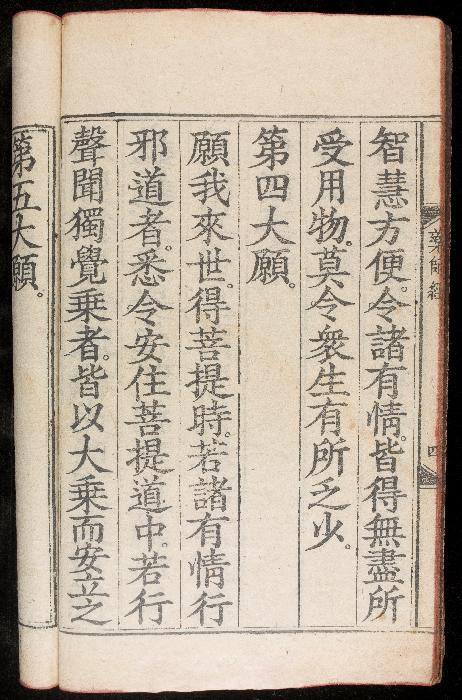 藥師經
四
智慧方便。令諸有情。皆得無盡所
受用物。莫令衆生有所乏少。
第四大願。
願我來世。得菩提時。若諸有情行
邪道者。悉令安住菩提道中。若行
聲聞獨覺乘者。皆以大乘而安立之
第五大願。